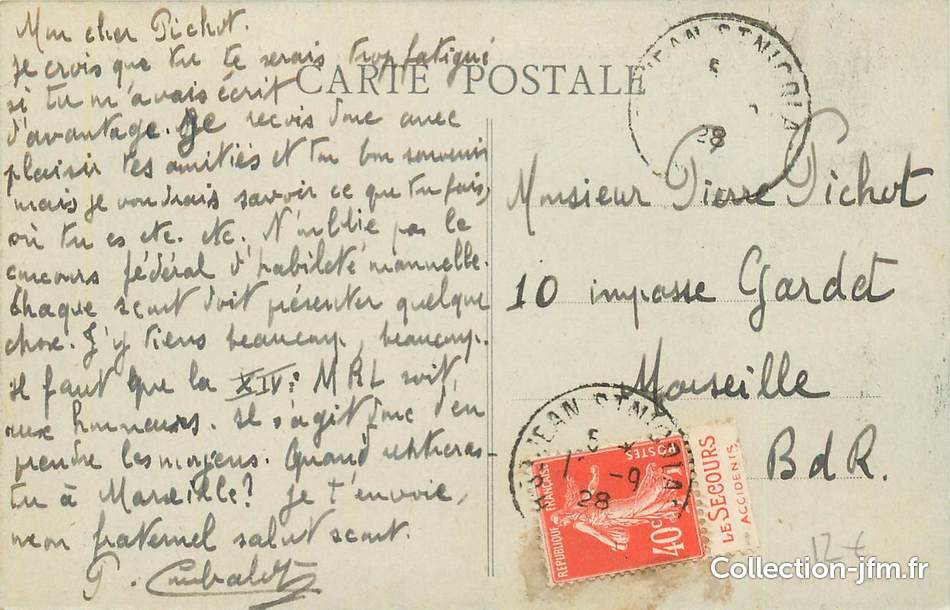 CARTE POSTALE
Mon cher Pichot.
Je crois que tu te serais trop fatigué
si tu m'avais écrit
d'avantage. Je recois donc avec
plaisir tes amitiés et ton bon souvenir
mais je voudrais savoir ce que tu fais,
où tu es etc. etc. N'oublie pas le
concours fédéral d'habileté manuelle.
Chaque scout doit présenter quelque
chose. J'y tiens beaucoup, beaucoup.
Il faut que la XIVe MRL soit
aux honneurs. Il s'agit donc d'en
prendre les moyens. Quand rentreras-
tu à Marseille? Je t'envoie,
mon fraternel salut scout.
P.
Monsieur Pierre Pichot
10 impasse Gardet
Marseille
BdR.
JEAN ST NICOLA
5
28
JEAN ST NICOLA
5
-9
28
REPUBLIQUE FRANÇAISE
POSTES
40c
LE SECOURS
ACCIDENTS
12€
Collection-jfm.fr